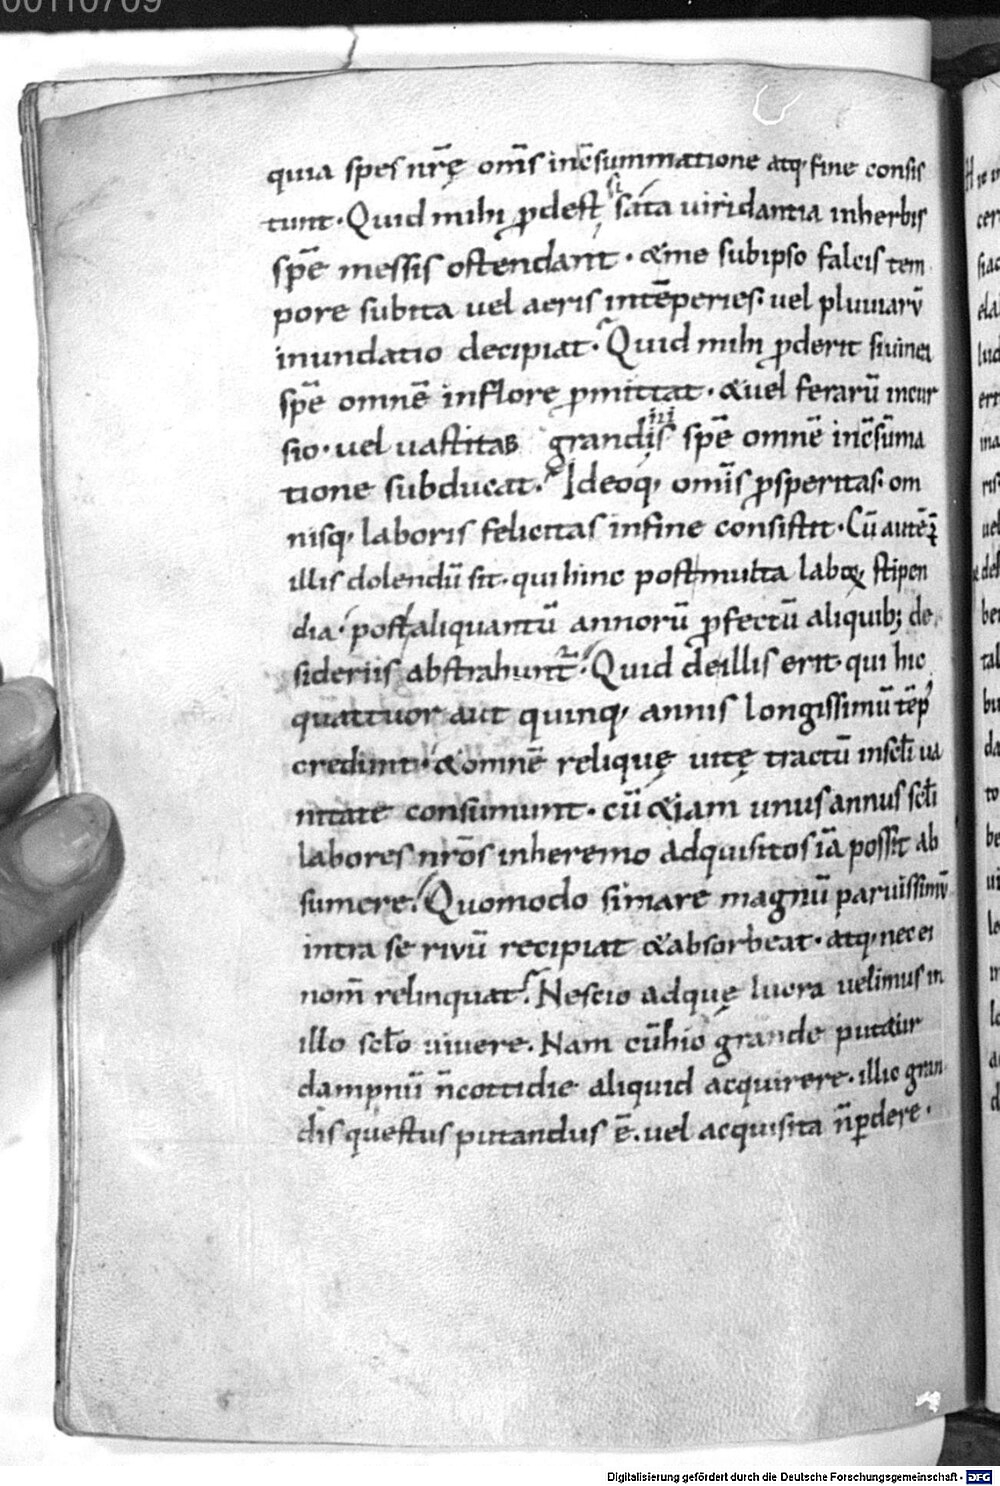 quia spes nrē omīs inc̄summatione atq; fine consis
tunt. Quid mihi ꝓdest si sata uiridantia inherbis
spē messis ostendant. &me subipso falcis tem
pore subita uel aeris intēperies. uel pluuiarū
inundatio decipiat. Quid mihi ꝓderit siuinea
spē omnē inflore ꝓmittat. &uel ferarū incur
sio. uel uastitas grandinis spē omnē inc̄sūma
tione subducat. Ideoq; omīs ꝓsperitas. om
nisq; laboris felicitas infine consistit. Cū autē
illis dolendū sit. qui hinc postmulta laboꝝ stipen
dia. post aliquantū annorū ꝓfectū aliquib; de
sideriis abstrahunt̄. Quid deillis erit. qui hic
quattuor aut quinq; annis longissimū tēp
credunt. &omnē reliquę uitę tractū insclī ua
nitate consumunt. cū &iam unus annus sclī
labores nrōs inheremo adquisitos iā possit ab
sumere. Quomodo simare magnū paruissimū
intra se riuū recipiat &absorbeat. atq; nec ei
nom̄ relinquat. Nescio adquę lucra uelimus in
illo sclō uiuere. Nam cūhic grande putatur
dampnū n̄cottidie aliquid acquirere. illic gran
dis questus putandus ē. uel acquisita n̄ꝑdere.
Digitalisierung gefördert durch die Deutsche Forschungsgemeinschaft - DFG